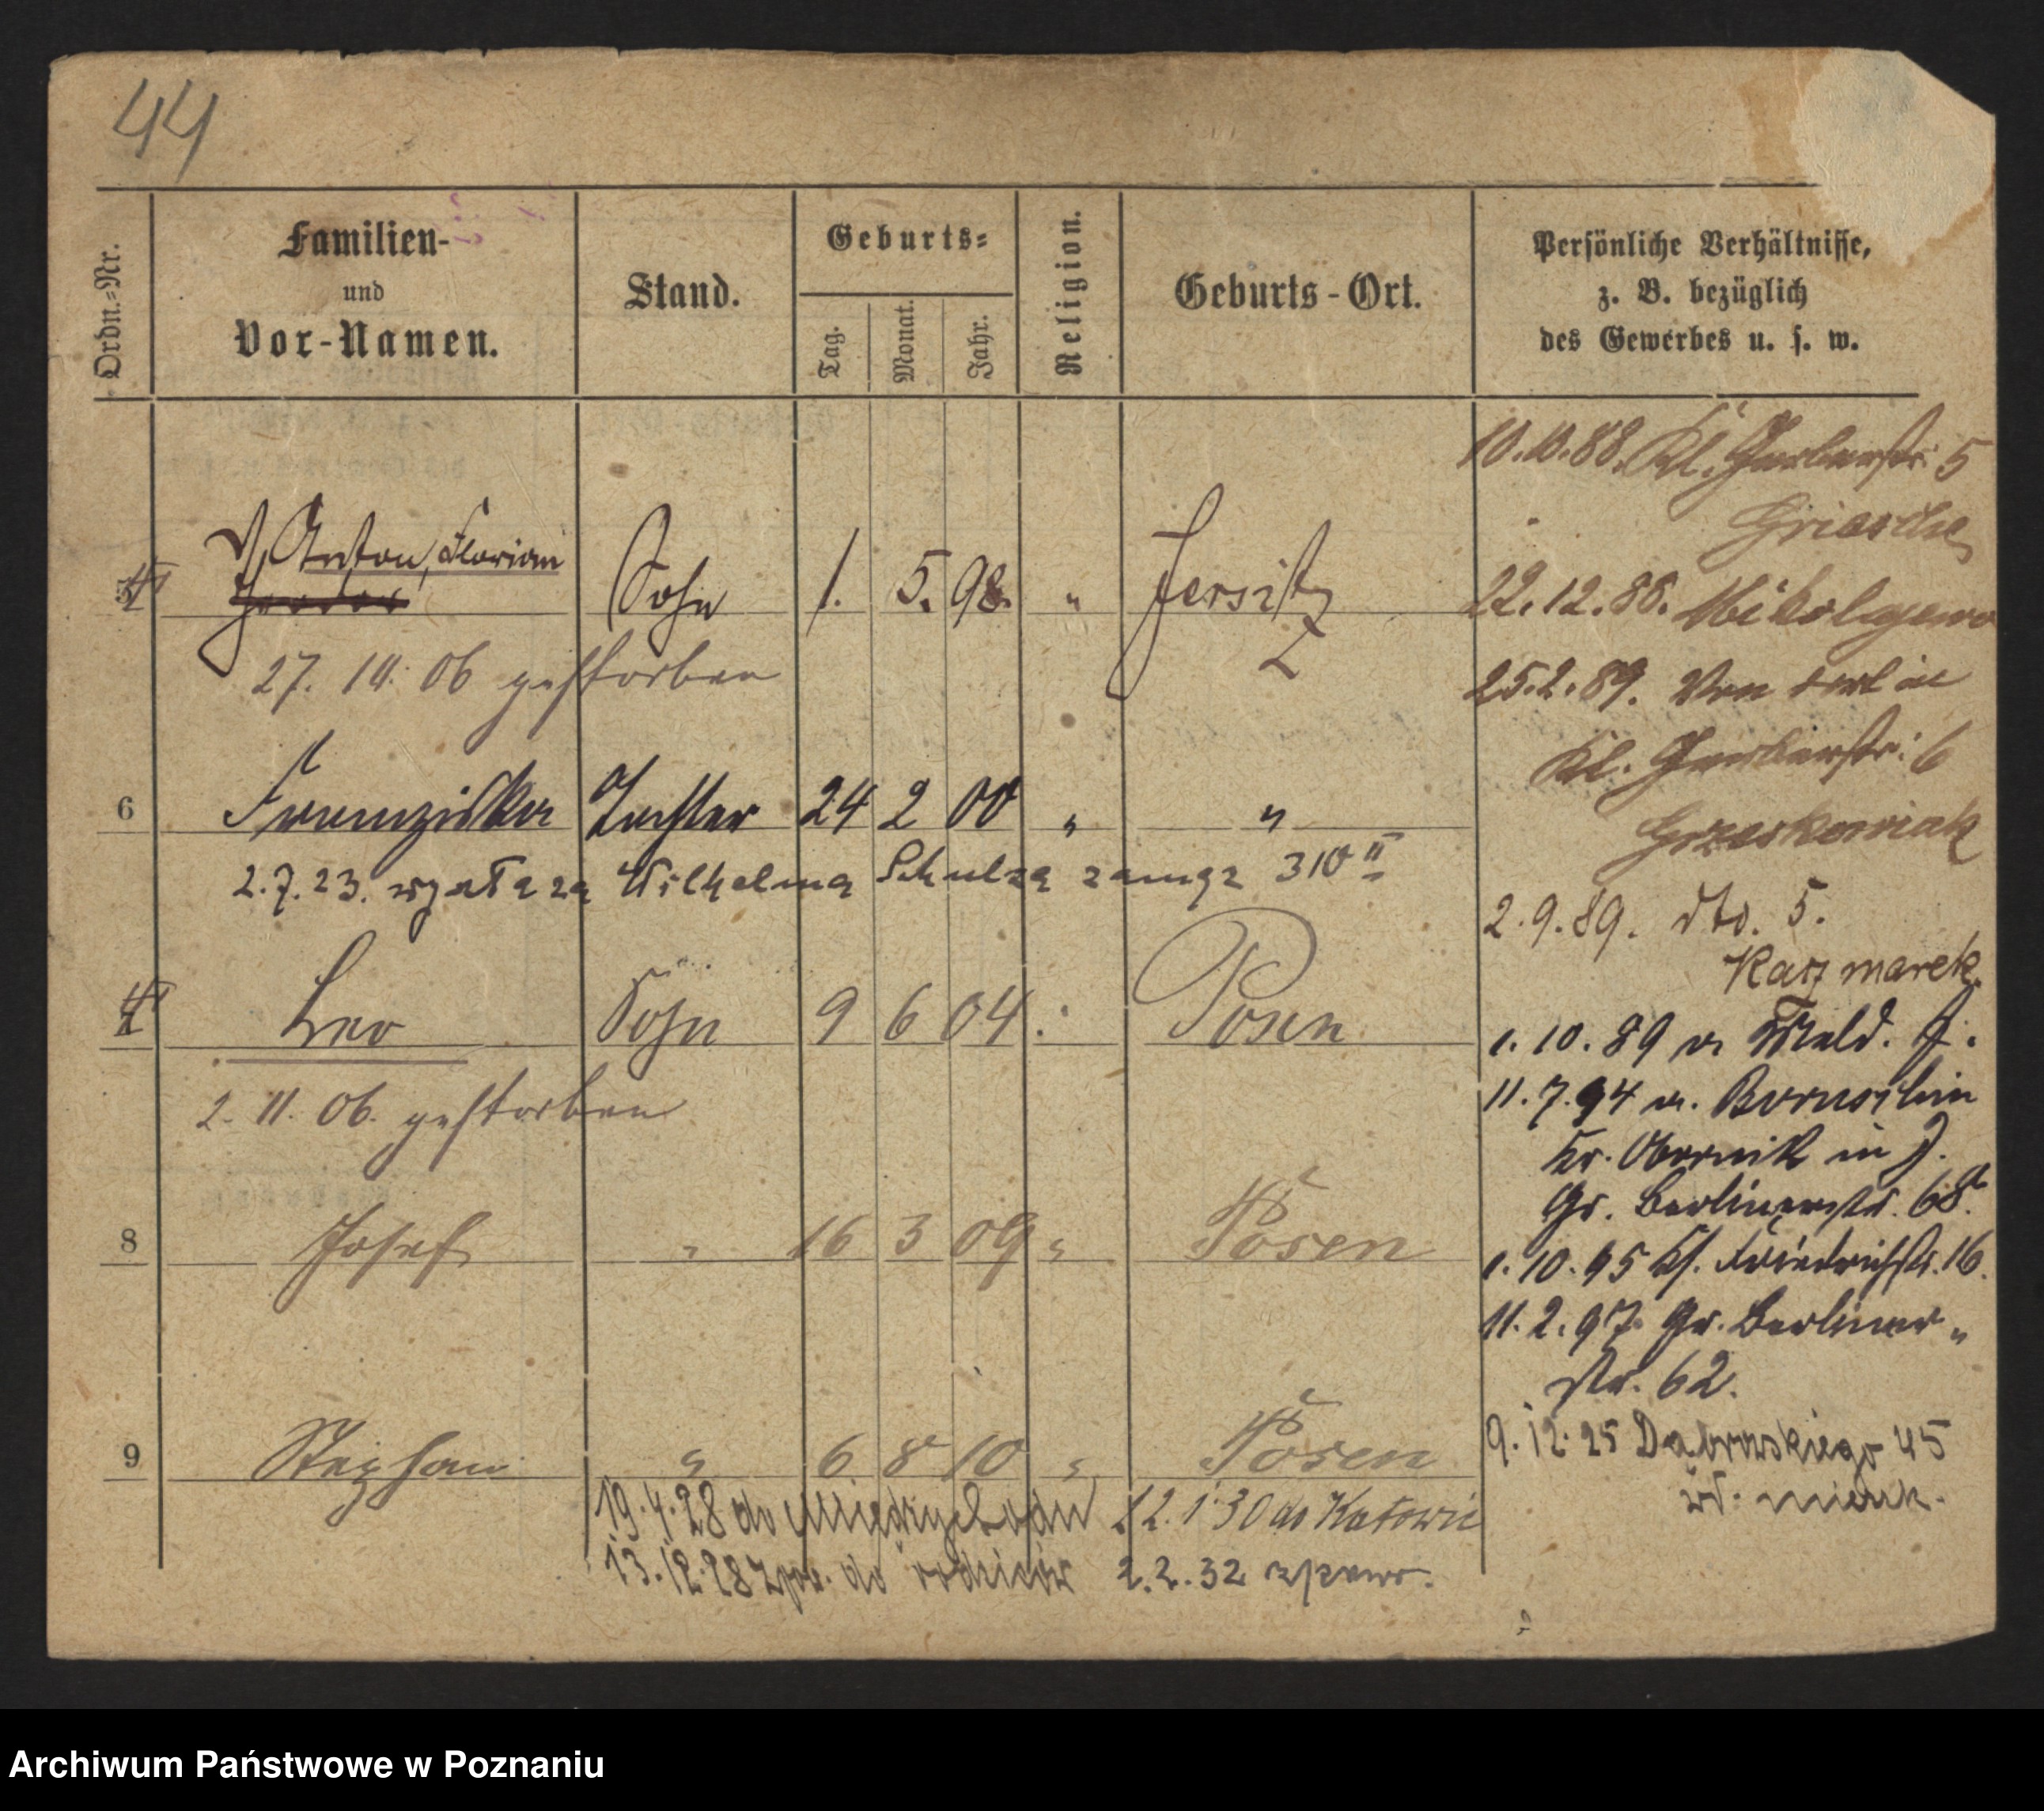 44
Ordn.=Nr.
Familien-
und
Vor-Namen.
Stand.
Geburts=
Tag.
Monat.
Jahr.
Religion.
Geburts-Ort.
Persönliche Verhältnisse,
z. B. bezüglich
des Gewerbes u. s. w.
Anton, Florian
Sohn 1. 5. 98. " Jersitz
27. 10. 06 gestorben
6 Franziska Tochter 24 2 00 " "
2.7.23. wyszła za Wilhelma Schulza zamąż 310 II
Leo Sohn 9 6 04. Posen
2. 11. 06. gestorben
8 Josef " 16 3 09 " Posen
9 Stephan " 6 8 10 " Posen
19.4.28 do Międzychodu
13.12.28 zpow. do rodziców
12.1.30 do Katowic
2.2.32 zpowr.
10.10.88. Kl. Gerberstr. 5
22.12.88.
25.2.89. Von dort in
Kl. Gerberstr. 6
Grzeskowiak
2.9.89. dto. 5.
Kaczmarek.
1.10.89 n. Meld. A.
11.7.94 n.
Kr. Obornik in J.
Gr. Berlinerstr. 68.
1.10.95 Kl. Friedrichstr. 16.
11.2.97. Gr. Berliner-
str. 62.
9.12.25 Dąbrowskiego 45
wł. mieszk.
Archiwum Państwowe w Poznaniu